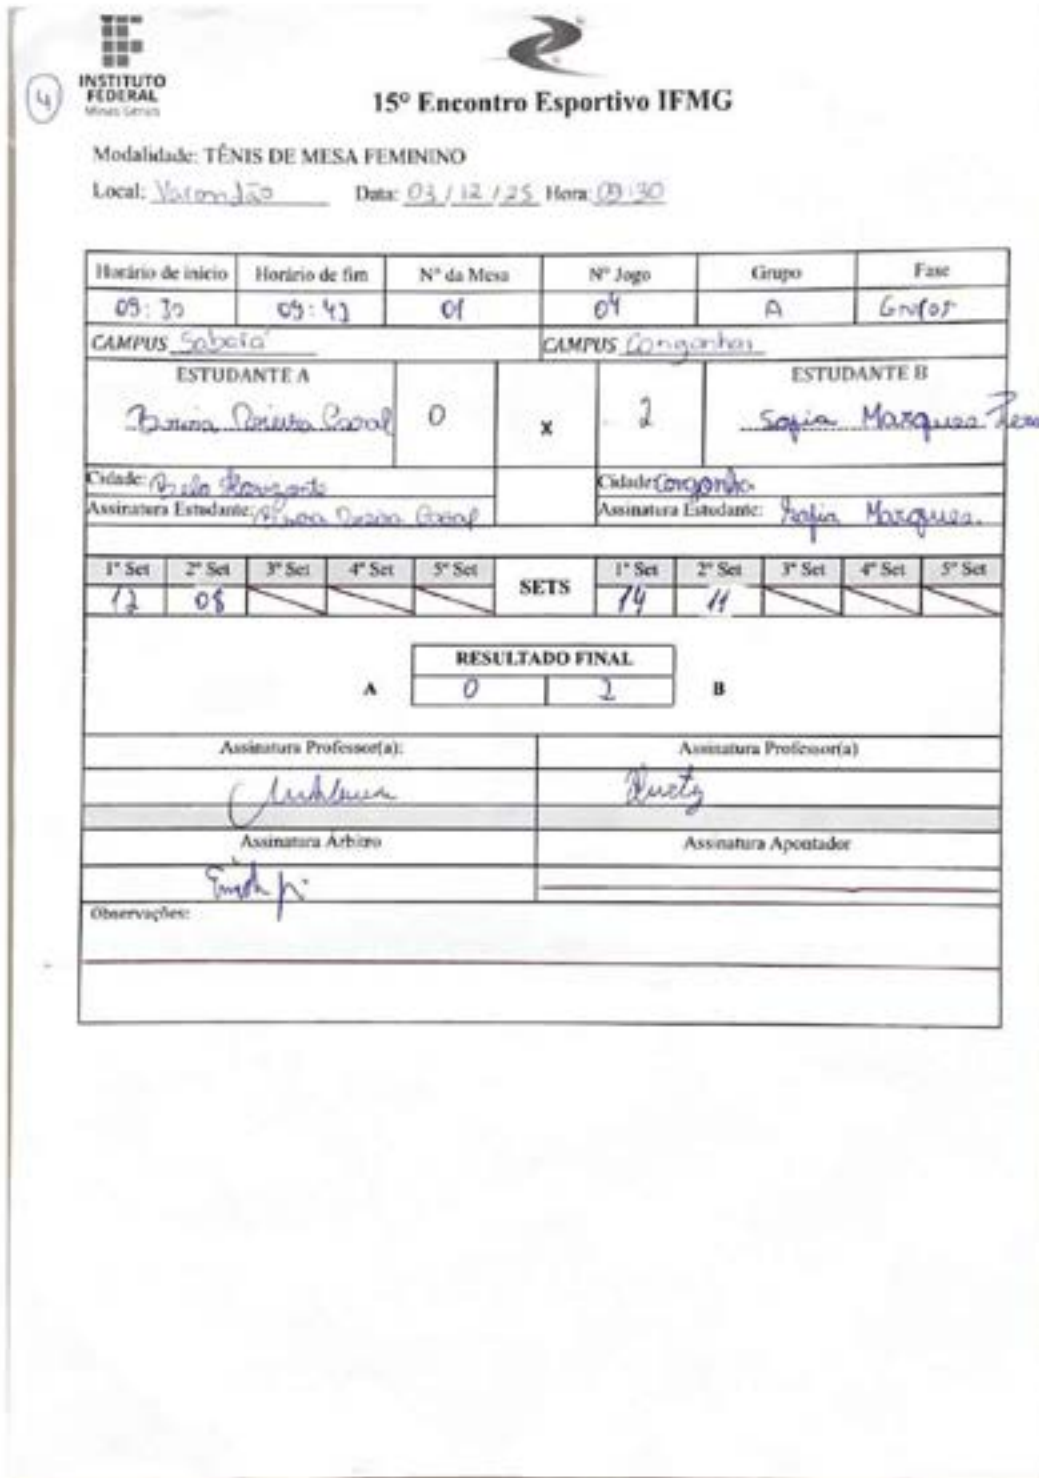 INSTITUTO
FEDERAL
Minas Gerais
4
15º Encontro Esportivo IFMG
Modalidade: TÊNIS DE MESA FEMININO
Local: Data: 03/12/25 Hora: 09:30
Horário de início Horário de fim Nº da Mesa Nº Jogo Grupo Fase
09:30 09:43 01 04 A Grupos
CAMPUS Sabará CAMPUS Congonhas
ESTUDANTE A ESTUDANTE B
Bruna Cabral 0 x 2 Sofia Marques
Cidade: Belo Horizonte Cidade: Congonha
Assinatura Estudante: Bruna Cabral Assinatura Estudante: Sofia Marques.
1º Set 2º Set 3º Set 4º Set 5º Set SETS 1º Set 2º Set 3º Set 4º Set 5º Set
12 08 14 11
RESULTADO FINAL
A 0 2 B
Assinatura Professor(a): Assinatura Professor(a)
Assinatura Árbitro Assinatura Apontador
Observações: